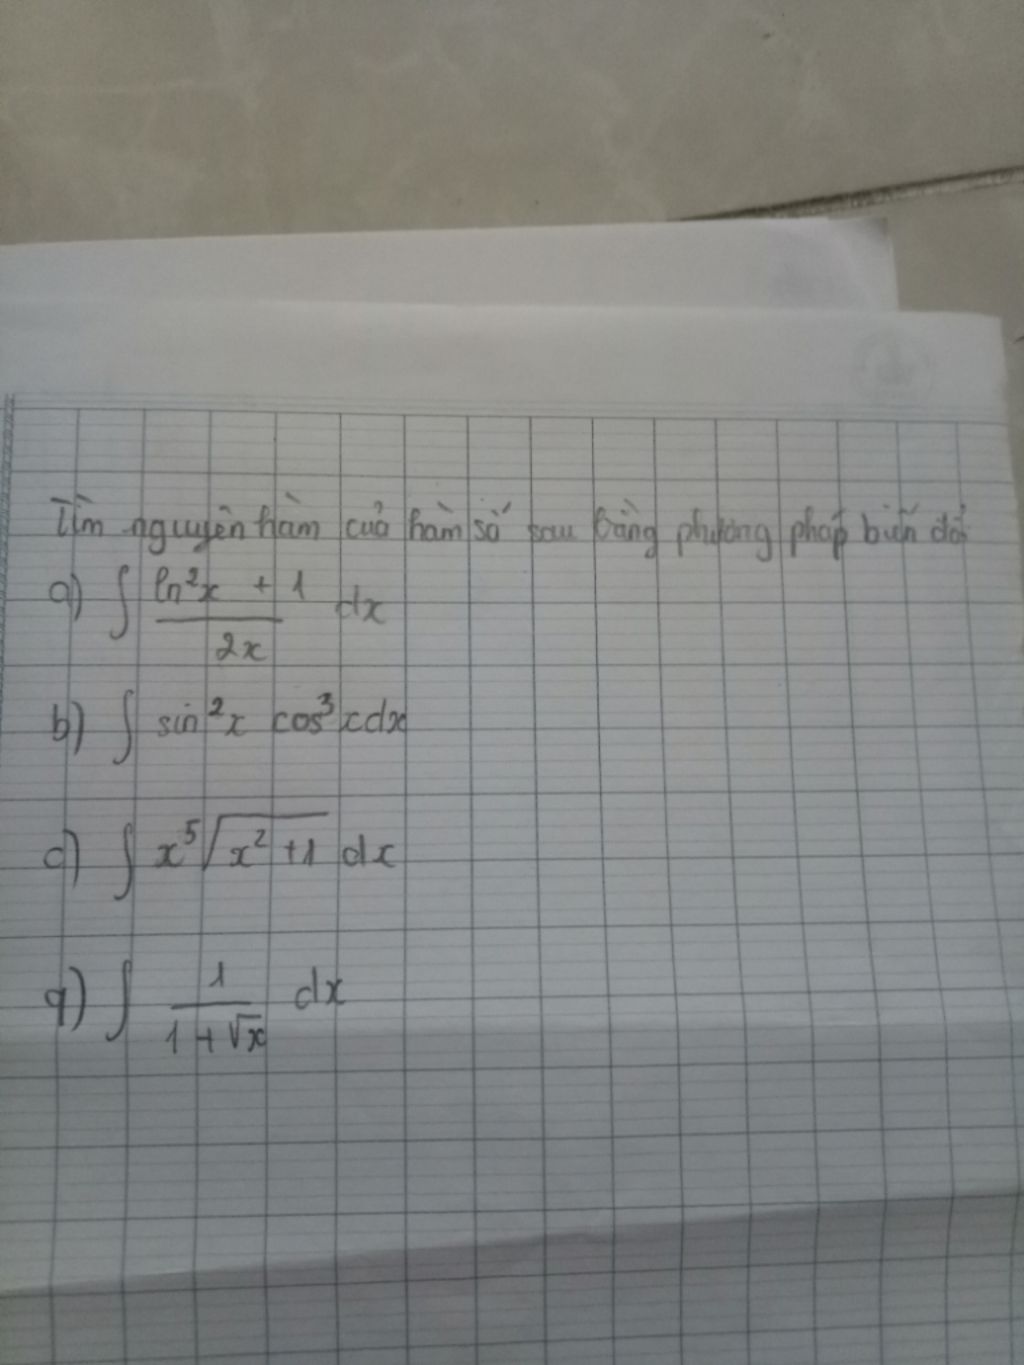 Tìm nguyên hàm của hàm số sau bằng phương pháp biến đổi
a) ∫ (ln²x + 1)/(2x) dx
b) ∫ sin²x cos³xdx
c) ∫ x⁵√(x² + 1) dx
q) ∫ 1/(1 + √x) dx